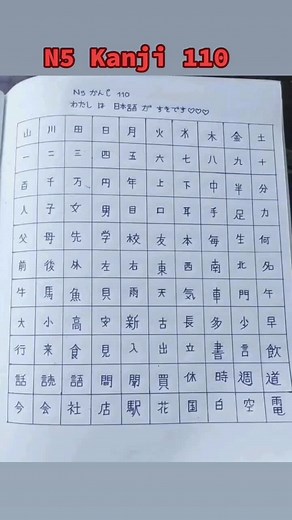 N5 Kanji 110
N5 かんじ 110
わたし は 日本語 が すきです♡♡♡
山 川 田 日 月 火 水 木 金 土
一 二 三 四 五 六 七 八 九 十
百 千 万 円 年 上 下 中 半 分
人 子 女 男 目 口 耳 手 足 力
父 母 先 学 校 友 本 毎 生 何
前 後 外 左 右 東 西 南 北 名
牛 馬 魚 貝 雨 天 気 車 門 午
大 小 高 安 新 古 長 多 少 早
行 来 食 見 入 出 立 書 言 飲
話 読 語 間 聞 買 休 時 週 道
今 会 社 店 駅 花 国 白 空 電